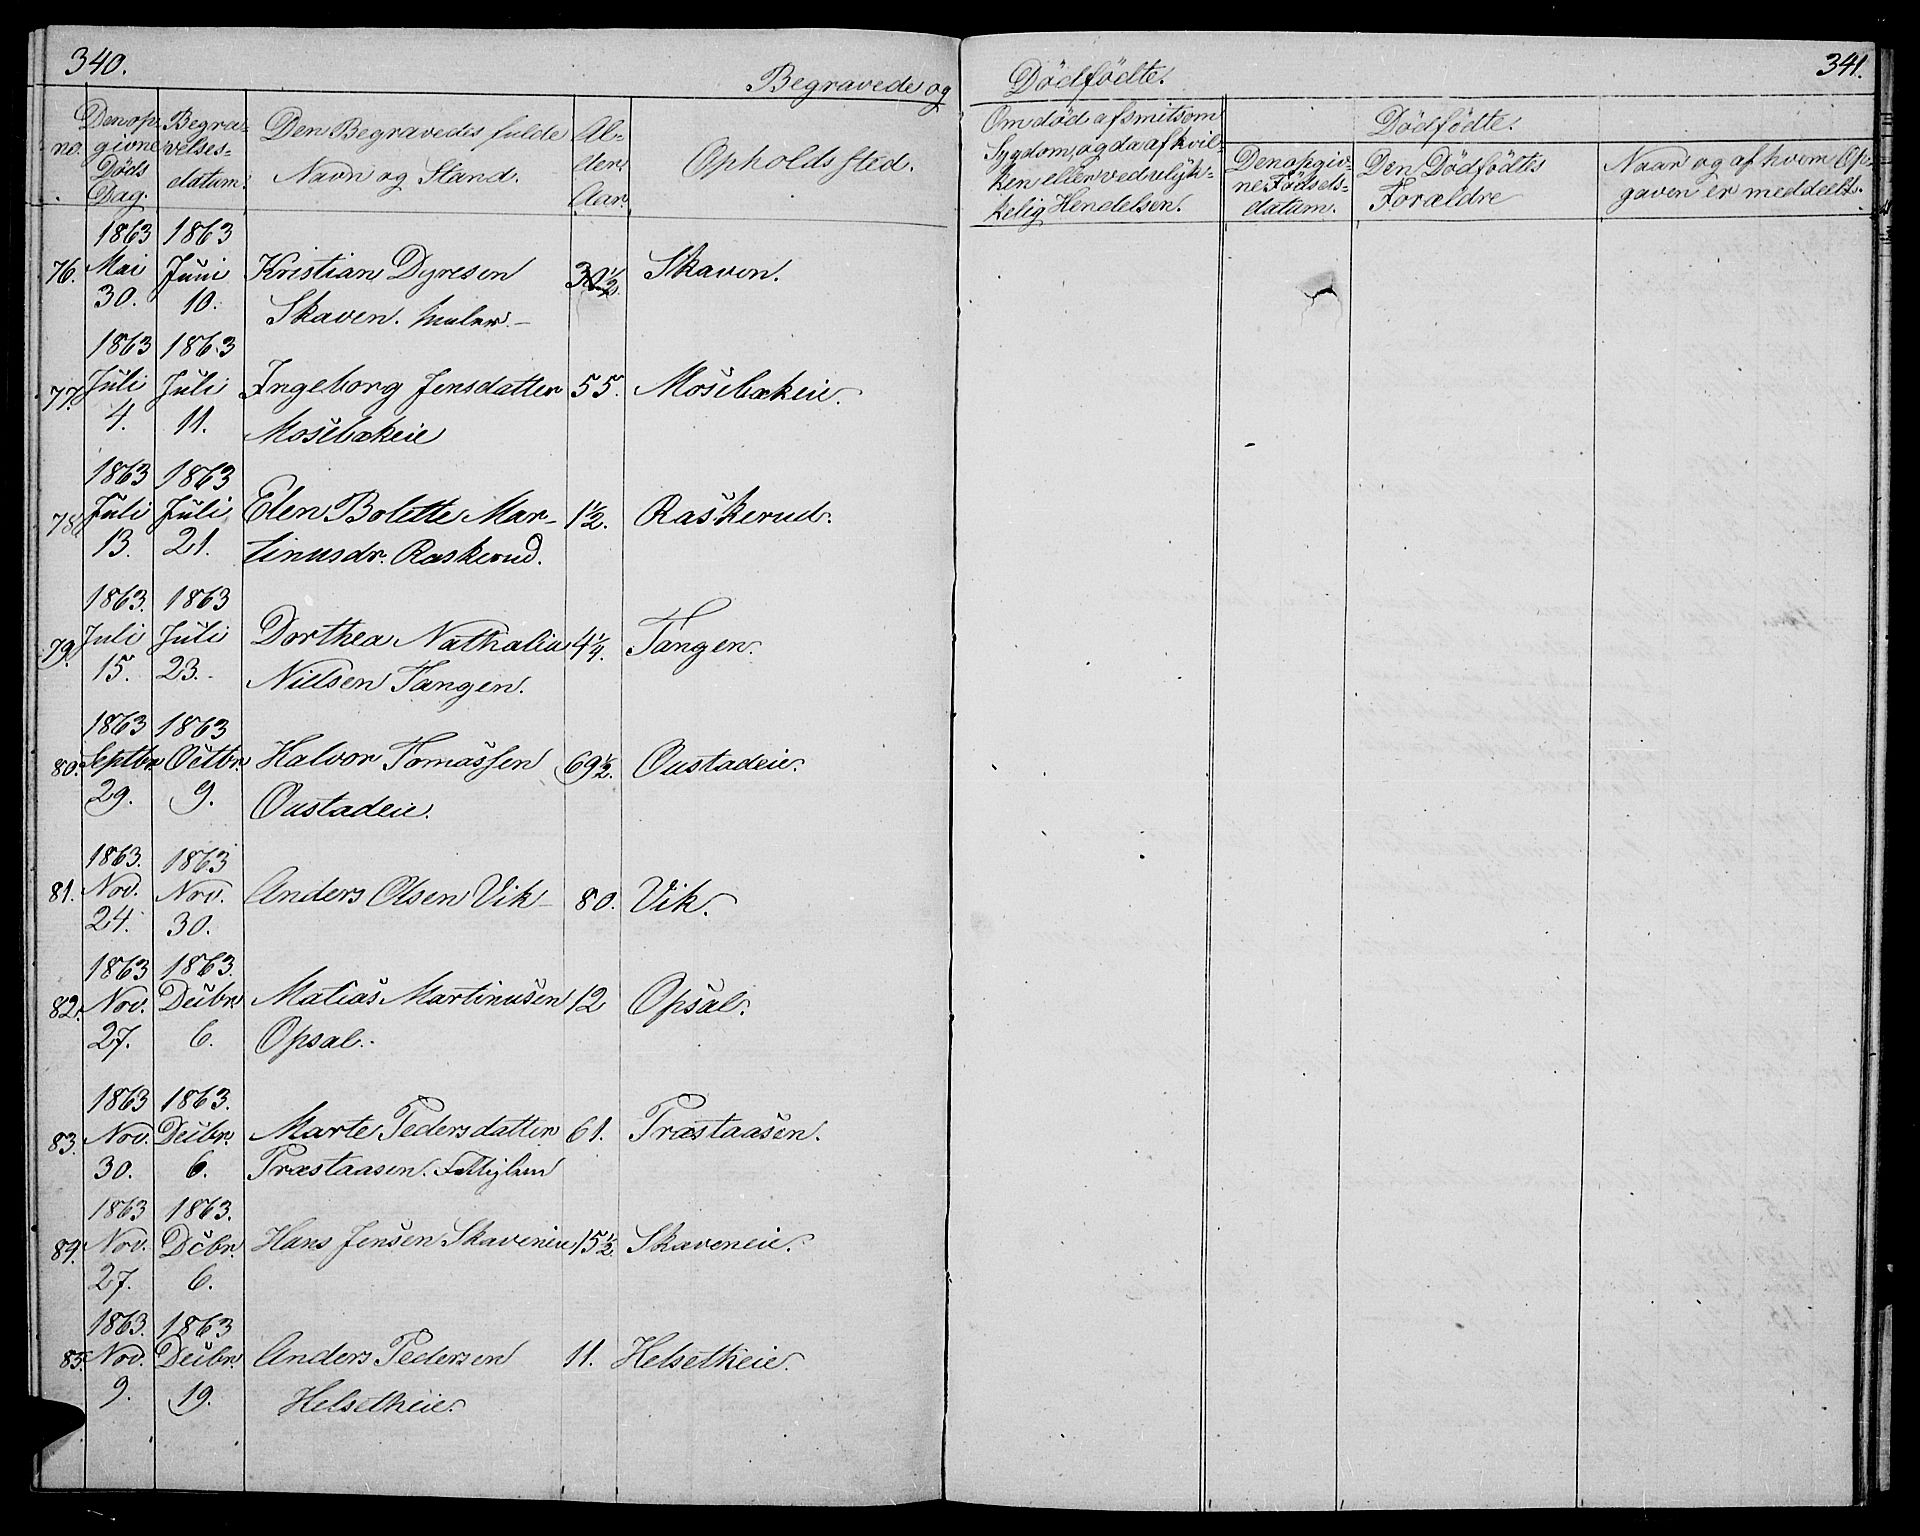 340.
Begravede og
Den op-
givne
Døds
Dag.
no.
Begra-
velses-
datum.
Den Begravedes fulde
Navn og Stand.
Al-
der.
Aar.
Opholdssted.
1863 1863
76. Mai Juni Kristian Dyresen Skaven.
30. 10. Skaven.
1863 1863
77. Juli Juli Ingeborg Jensdatter 55. Mosebækeie.
4. 11. Mosebækeie
1863 1863
78. Juli Juli Elen Bolette Mar- 1½. Raskerud.
13. 21. tinusdr. Raskerud.
1863. 1863
79. Juli Juli Dorthea Nathalia 4¼. Tangen.
15. 23. Nielsen Tangen.
1863 1863
80. Septbr. Octbr. Halvor Tomassen 69½. Oustadeie.
29. 9. Oustadeie.
1863. 1863
81. Nov. Nov. Anders Olsen Vik 80. Vik.
24. 30.
1863 1863.
82. Nov. Decbr. Matias Martinusen 12 Opsal.
27. 6. Opsal.
1863 1863.
83. Nov. Decbr. Marte Pedersdatter 61. Præstaasen.
30. 6. Præstaasen. Fattiglem
1863 1863.
84. Nov. Dcbr. Hans Jensen Skaveneie 15½. Skaveneie.
27. 6.
1863. 1863
85. Nov. Decbr. Anders Pedersen 11. Helsetheie.
9. 19. Helsetheie.
341.
Dødfødte.
Om død af smitsom
Sygdom, og da af hvil-
ken eller ved ulyk-
kelig Hendelsen.
Dødfødte.
Den opgiv-
ne Fødsels-
datum.
Den Dødfødtes
Forældre
Naar og af hvem Op-
gaven er meddeelt.